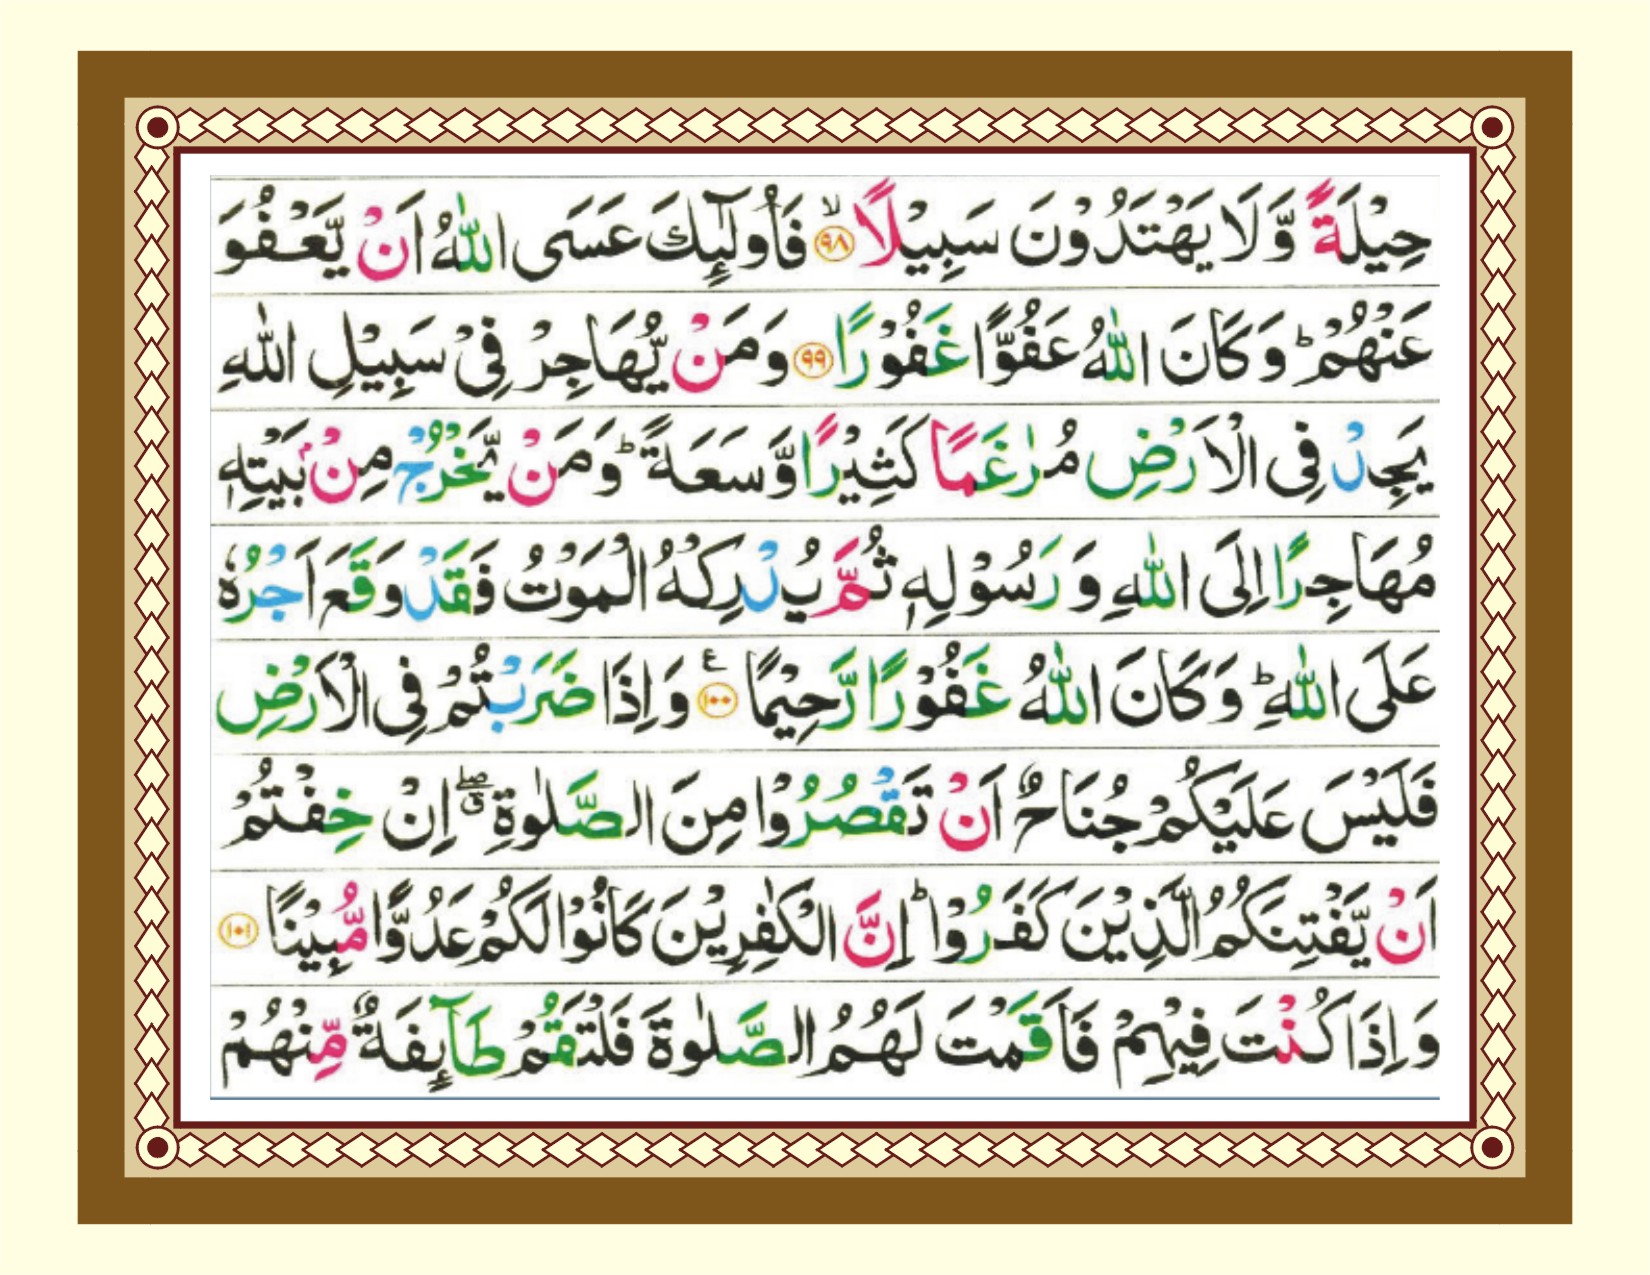 حِيْلَةً وَّلَا يَهْتَدُوْنَ سَبِيْلًا ۙ﴿۹۸﴾ فَاُولٰٓئِكَ عَسَى اللّٰهُ اَنْ يَّعْفُوَ
عَنْهُمْ ؕ وَكَانَ اللّٰهُ عَفُوًّا غَفُوْرًا ﴿۹۹﴾ وَمَنْ يُّهَاجِرْ فِىْ سَبِيْلِ اللّٰهِ
يَجِدْ فِى الْاَرْضِ مُرٰغَمًا كَثِيْرًا وَّسَعَةً ؕ وَمَنْ يَّخْرُجْ مِنْۢ بَيْتِهٖ
مُهَاجِرًا اِلَى اللّٰهِ وَ رَسُوْلِهٖ ثُمَّ يُدْرِكْهُ الْمَوْتُ فَقَدْ وَقَعَ اَجْرُهٗ
عَلَى اللّٰهِ ؕ وَكَانَ اللّٰهُ غَفُوْرًا رَّحِيْمًا ﴿۱۰۰﴾ ع وَاِذَا ضَرَبْتُمْ فِى الْاَرْضِ
فَلَيْسَ عَلَيْكُمْ جُنَاحٌ اَنْ تَقْصُرُوْا مِنَ الصَّلٰوةِ ۖق اِنْ خِفْتُمْ
اَنْ يَّفْتِنَكُمُ الَّذِيْنَ كَفَرُوْا ؕ اِنَّ الْكٰفِرِيْنَ كَانُوْا لَكُمْ عَدُوًّا مُّبِيْنًا ﴿۱۰۱﴾
وَاِذَا كُنْتَ فِيْهِمْ فَاَقَمْتَ لَهُمُ الصَّلٰوةَ فَلْتَقُمْ طَآئِفَةٌ مِّنْهُمْ